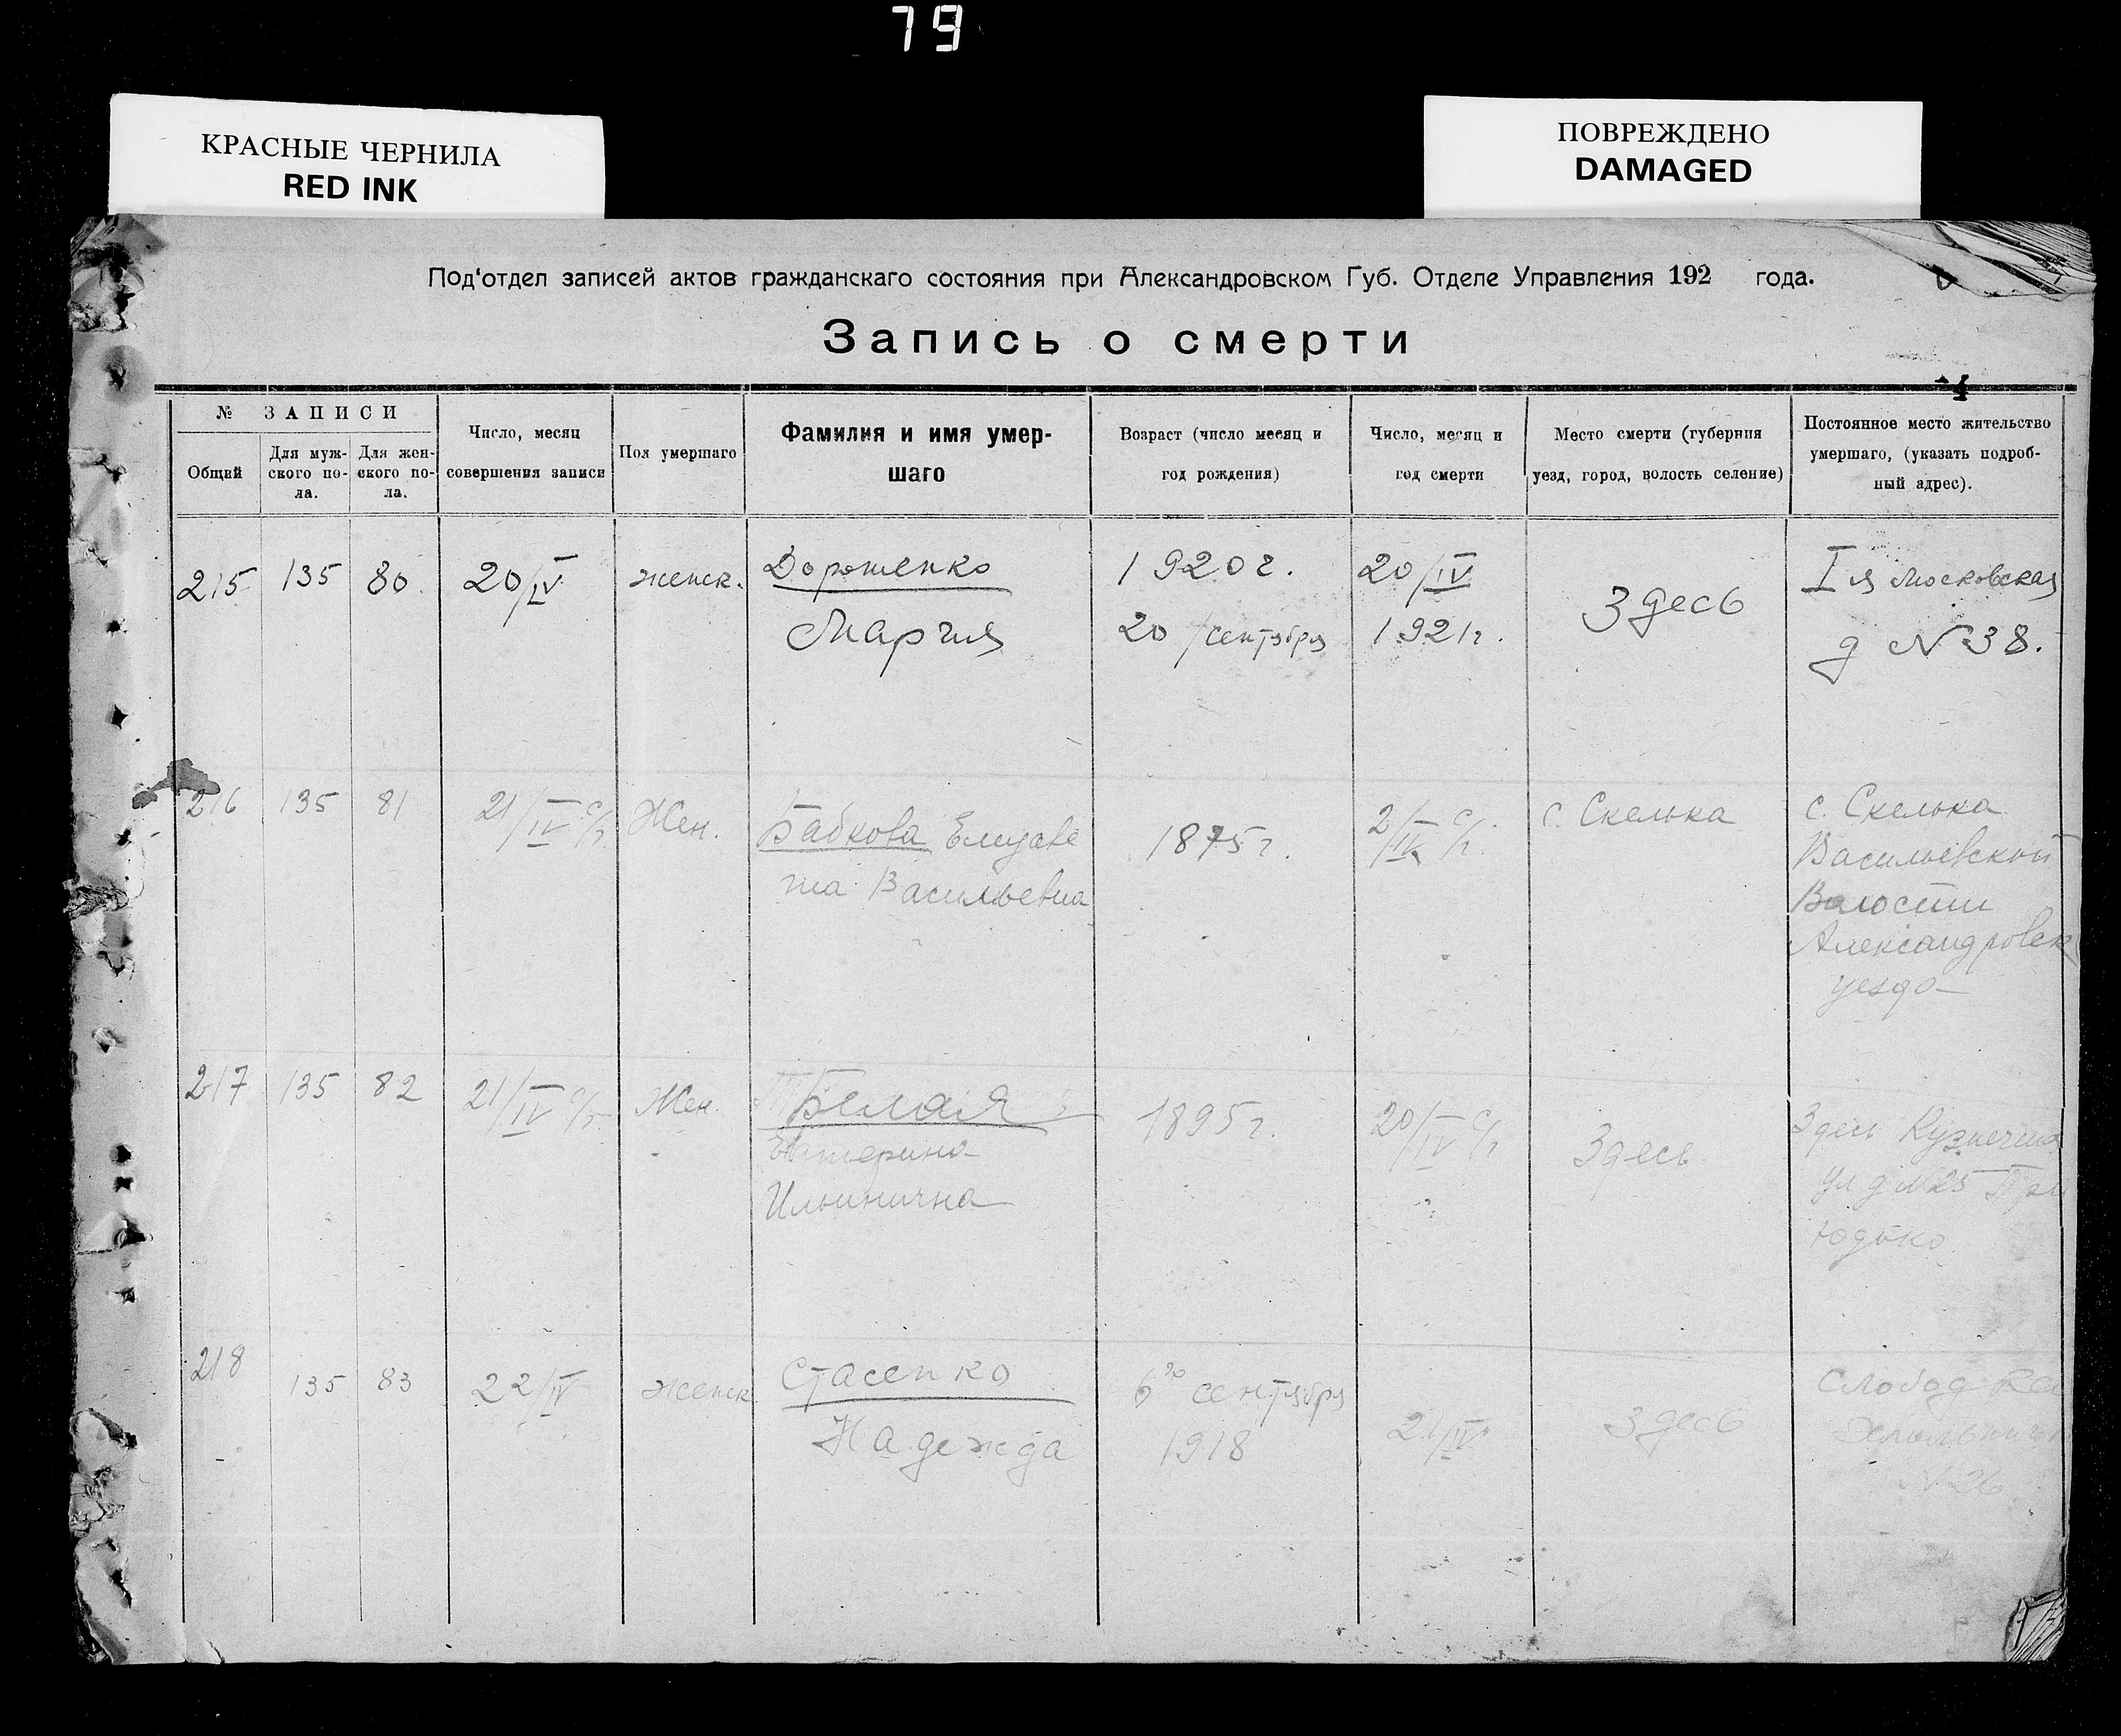 79
КРАСНЫЕ ЧЕРНИЛА
RED INK
ПОВРЕЖДЕНО
DAMAGED
Под‘отдел записей актов гражданскаго состояния при Александровском Губ. Отделе Управления 192 года.
Запись о смерти
№ ЗАПИСИ
Общий
Для муж-
ского по-
ла.
Для жен-
ского по-
ла.
Число, месяц
совершения записи
Пол умершаго
Фамилия и имя умер-
шаго
Возраст (число месяц и
год рождения)
Число, месяц и
год смерти
Место смерти (губерния
уезд, город, волость селение)
Постоянное место жительство
умершаго, (указать подроб-
ный адрес).
215 135 80. 20/IV женск. Дорошенко 1920 г. 20/IV Здесь I я Московская
Мария 20/сентября 1921 г. д N 38.
216 135 81 21/IV с/г Жен. Бабкова Елизаве 1875 г. 2/IV с/г. с. Скелька с. Скелька
та Васильевна Васильевской
Волости
Александровск
уезда
217 135 82 21/IV с/г Жен. Белая 1895 г. 20/IV с/г Здесь Здесь
Екатерина ул д N25
Ильинична
218 135 83 22/IV женск Стасенко 6го сентября 21/IV Здесь Слобод
Надежда 1918
N 26